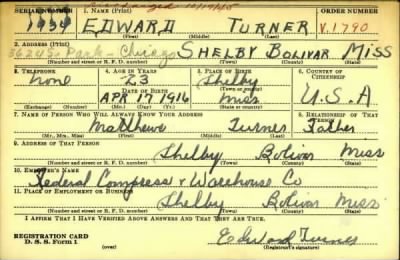 Discharged 10/19/45
SERIAL NUMBER 1. NAME (Print) ORDER NUMBER
1934 EDWARD TURNER V.1790
(First) (Middle) (Last)
2. ADDRESS (Print)
3624 So Park - Chicago SHELBY BOLIVAR MISS
(Number and street or R. F. D. number) (Town) (County) (State)
3. TELEPHONE 4. AGE IN YEARS 5. PLACE OF BIRTH 6. COUNTRY OF CITIZENSHIP
none 23 Shelby
DATE OF BIRTH (Town or county)
APR 17 1916 Miss U.S.A
(Exchange) (Number) (Mo.) (Day) (Yr.) (State or country)
7. NAME OF PERSON WHO WILL ALWAYS KNOW YOUR ADDRESS 8. RELATIONSHIP OF THAT PERSON
Matthew Turner Father
(Mr., Mrs., Miss) (First) (Middle) (Last)
9. ADDRESS OF THAT PERSON
Shelby Bolivar Miss
(Number and street or R. F. D. number) (Town) (County) (State)
10. EMPLOYER'S NAME
Federal Compress & Warehouse Co
11. PLACE OF EMPLOYMENT OR BUSINESS
Shelby Bolivar Miss
(Number and street or R. F. D. number) (Town) (County) (State)
I AFFIRM THAT I HAVE VERIFIED ABOVE ANSWERS AND THAT THEY ARE TRUE.
REGISTRATION CARD
D. S. S. Form 1 (over) Edward Turner
(Registrant's signature)